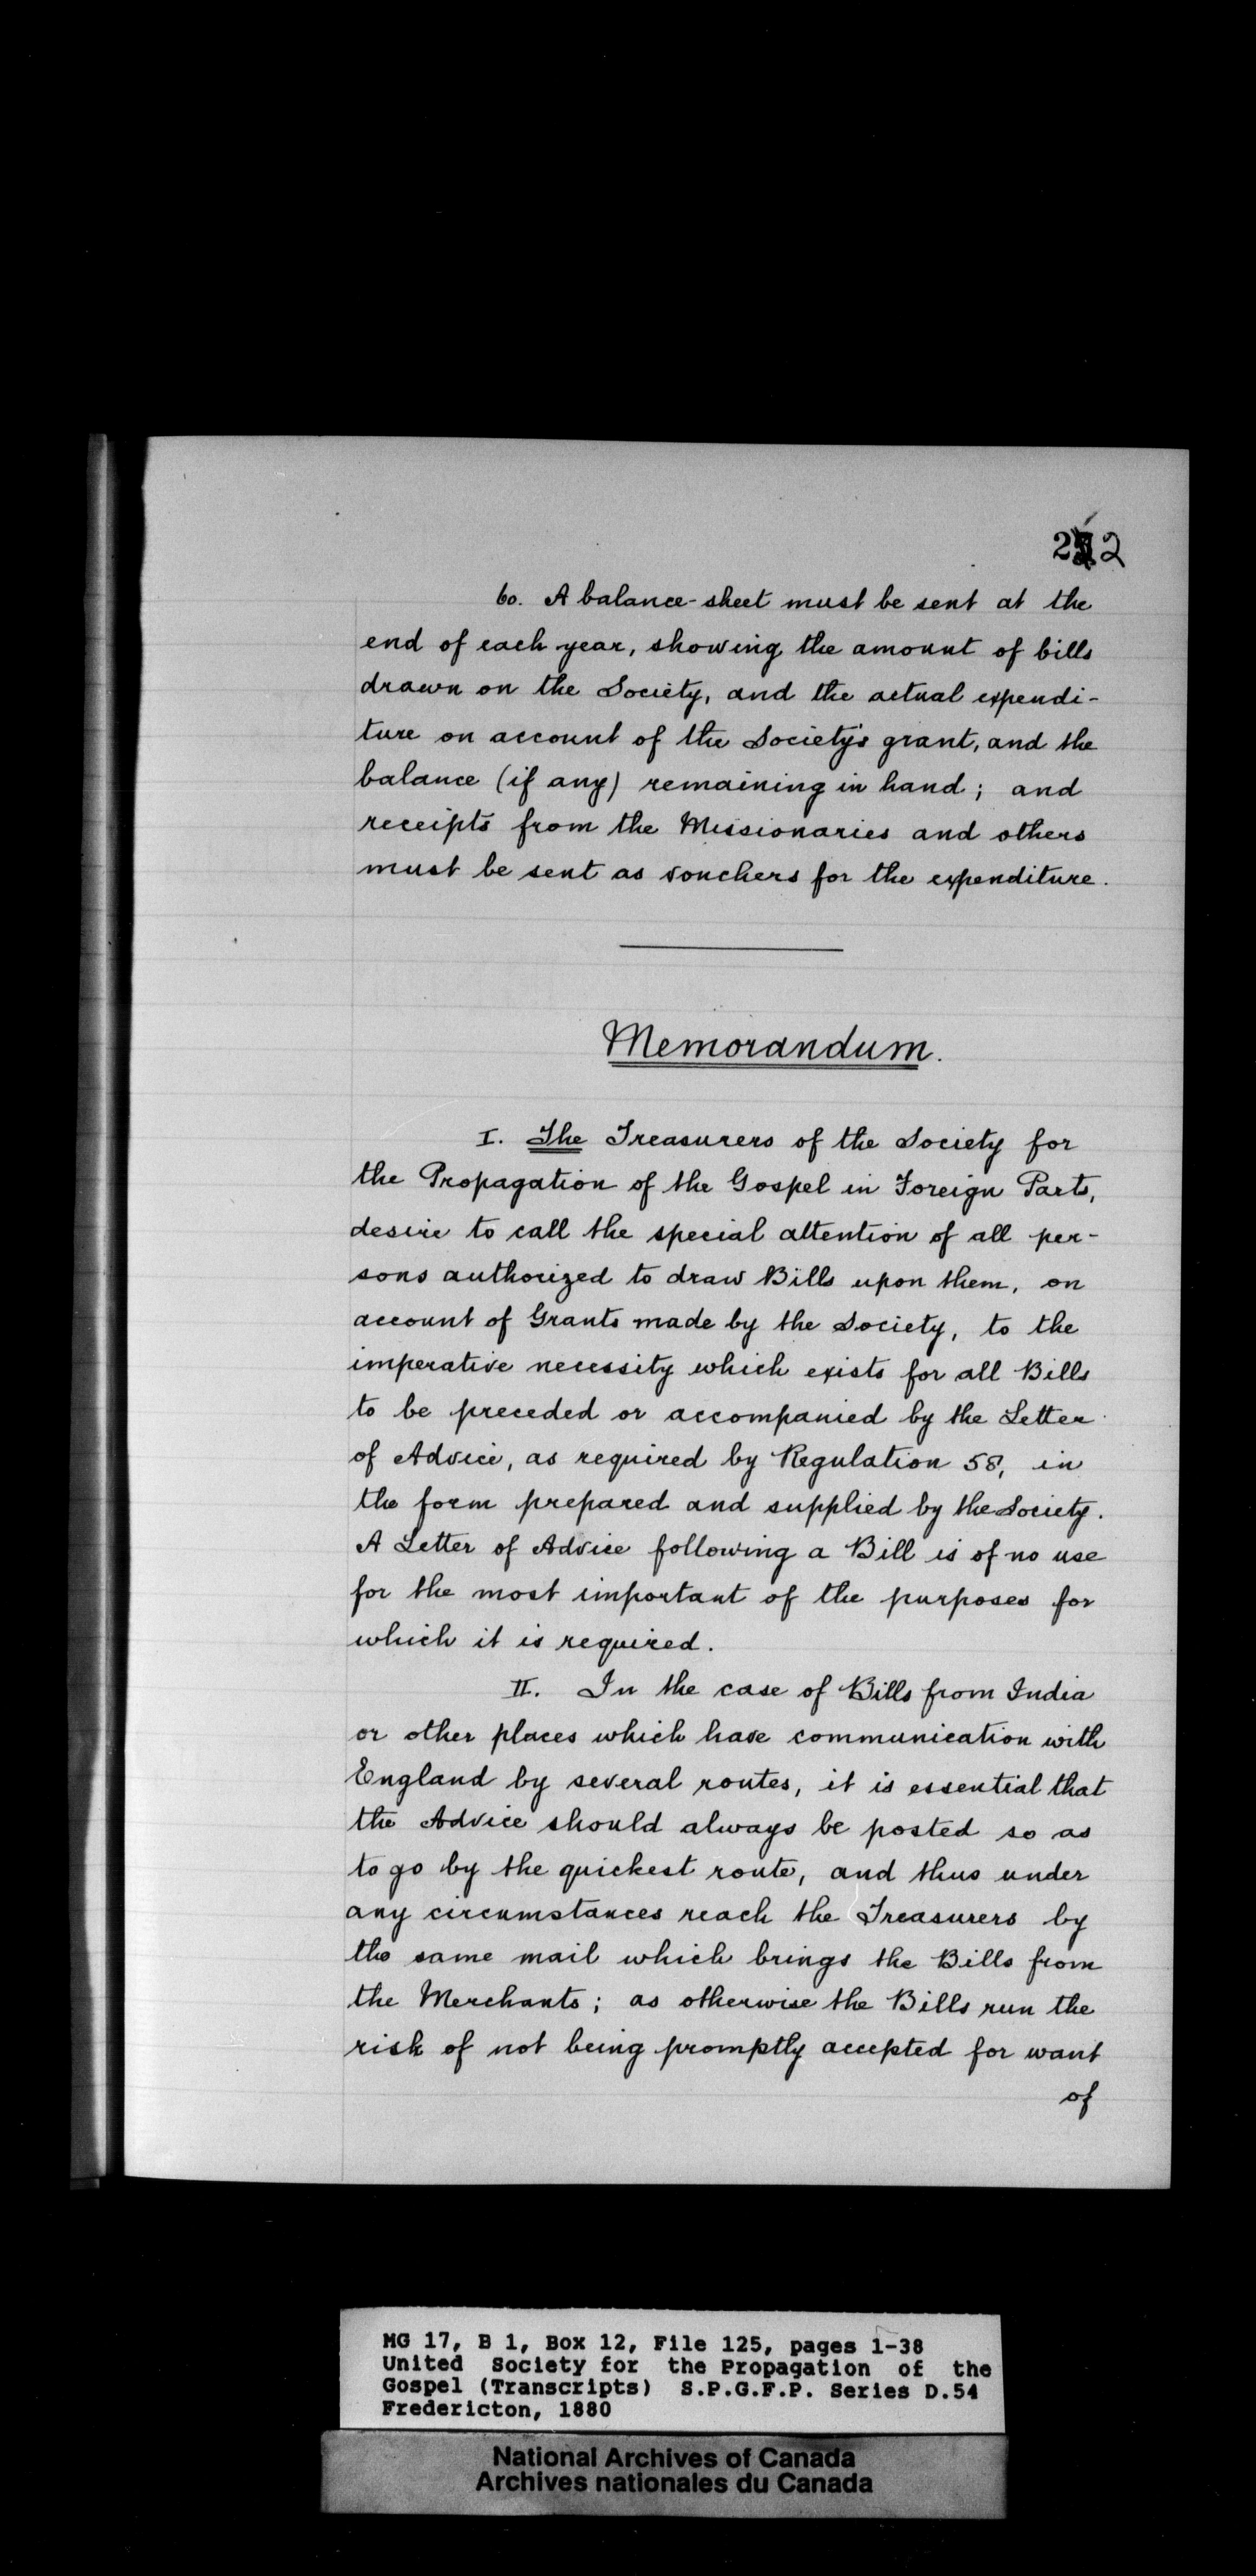 22
60. A balance-sheet must be sent at the
end of each year, showing the amount of bills
drawn on the Society, and the actual expendi-
ture on account of the Society's grant, and the
balance (if any) remaining in hand; and
receipts from the Missionaries and others
must be sent as vouchers for the expenditure.
Memorandum.
I. The Treasurers of the Society for
the Propagation of the Gospel in Foreign Parts,
desire to call the special attention of all per-
sons authorized to draw Bills upon them, on
account of Grants made by the Society, to the
imperative necessity which exists for all Bills
to be preceded or accompanied by the Letter
of Advice, as required by Regulation 58, in
the form prepared and supplied by the Society.
A Letter of Advice following a Bill is of no use
for the most important of the purposes for
which it is required.
II. In the case of Bills from India
or other places which have communication with
England by several routes, it is essential that
the Advice should always be posted so as
to go by the quickest route, and thus under
any circumstances reach the Treasurers by
the same mail which brings the Bills from
the Merchants; as otherwise the Bills run the
risk of not being promptly accepted for want
of
MG 17, B 1, Box 12, File 125, pages 1-38
United Society for the Propagation of the
Gospel (Transcripts) S.P.G.F.P. Series D.54
Fredericton, 1880
National Archives of Canada
Archives nationales du Canada